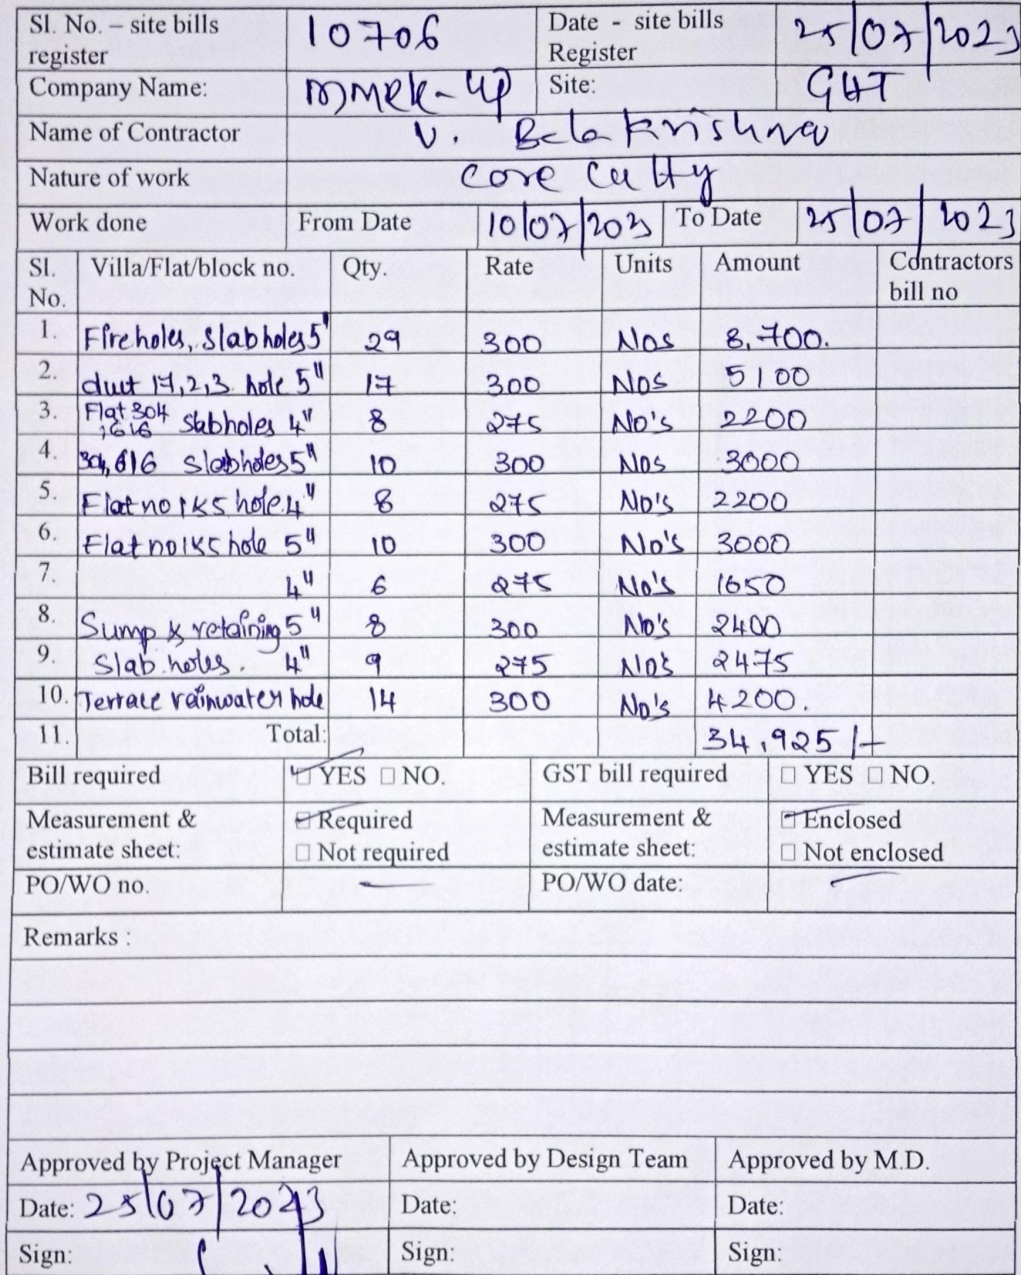 Sl. No. – site bills register 10706 Date - site bills Register 25/07/2023
Company Name: Site: GHT
Name of Contractor V. Balakrishna
Nature of work core cutty
Work done From Date 10/07/2023 To Date 25/07/2023
Sl. No. Villa/Flat/block no. Qty. Rate Units Amount Contractors bill no
1. Fireholes, Slabholes 5" 29 300 Nos 8,700.
2. duct 17,2,3 hole 5" 17 300 Nos 5100
3. Flat 304 slabholes 4" 8 275 No's 2200
4. 616 slabholes 5" 10 300 Nos 3000
5. Flat no hole 4" 8 275 No's 2200
6. Flat no hole 5" 10 300 No's 3000
7. 4" 6 275 No's 1650
8. Sump & retaining 5" 8 300 No's 2400
9. Slab.holes 4" 9 275 Nos 2475
10. Terrace rainwater hole 14 300 No's 4200.
11. Total: 34,925/-
Bill required YES NO. GST bill required YES NO.
Measurement & estimate sheet: Required Measurement & estimate sheet: Enclosed
Not required Not enclosed
PO/WO no. – PO/WO date: –
Remarks :
Approved by Project Manager Approved by Design Team Approved by M.D.
Date: 25/07/2023 Date: Date:
Sign: Sign: Sign: